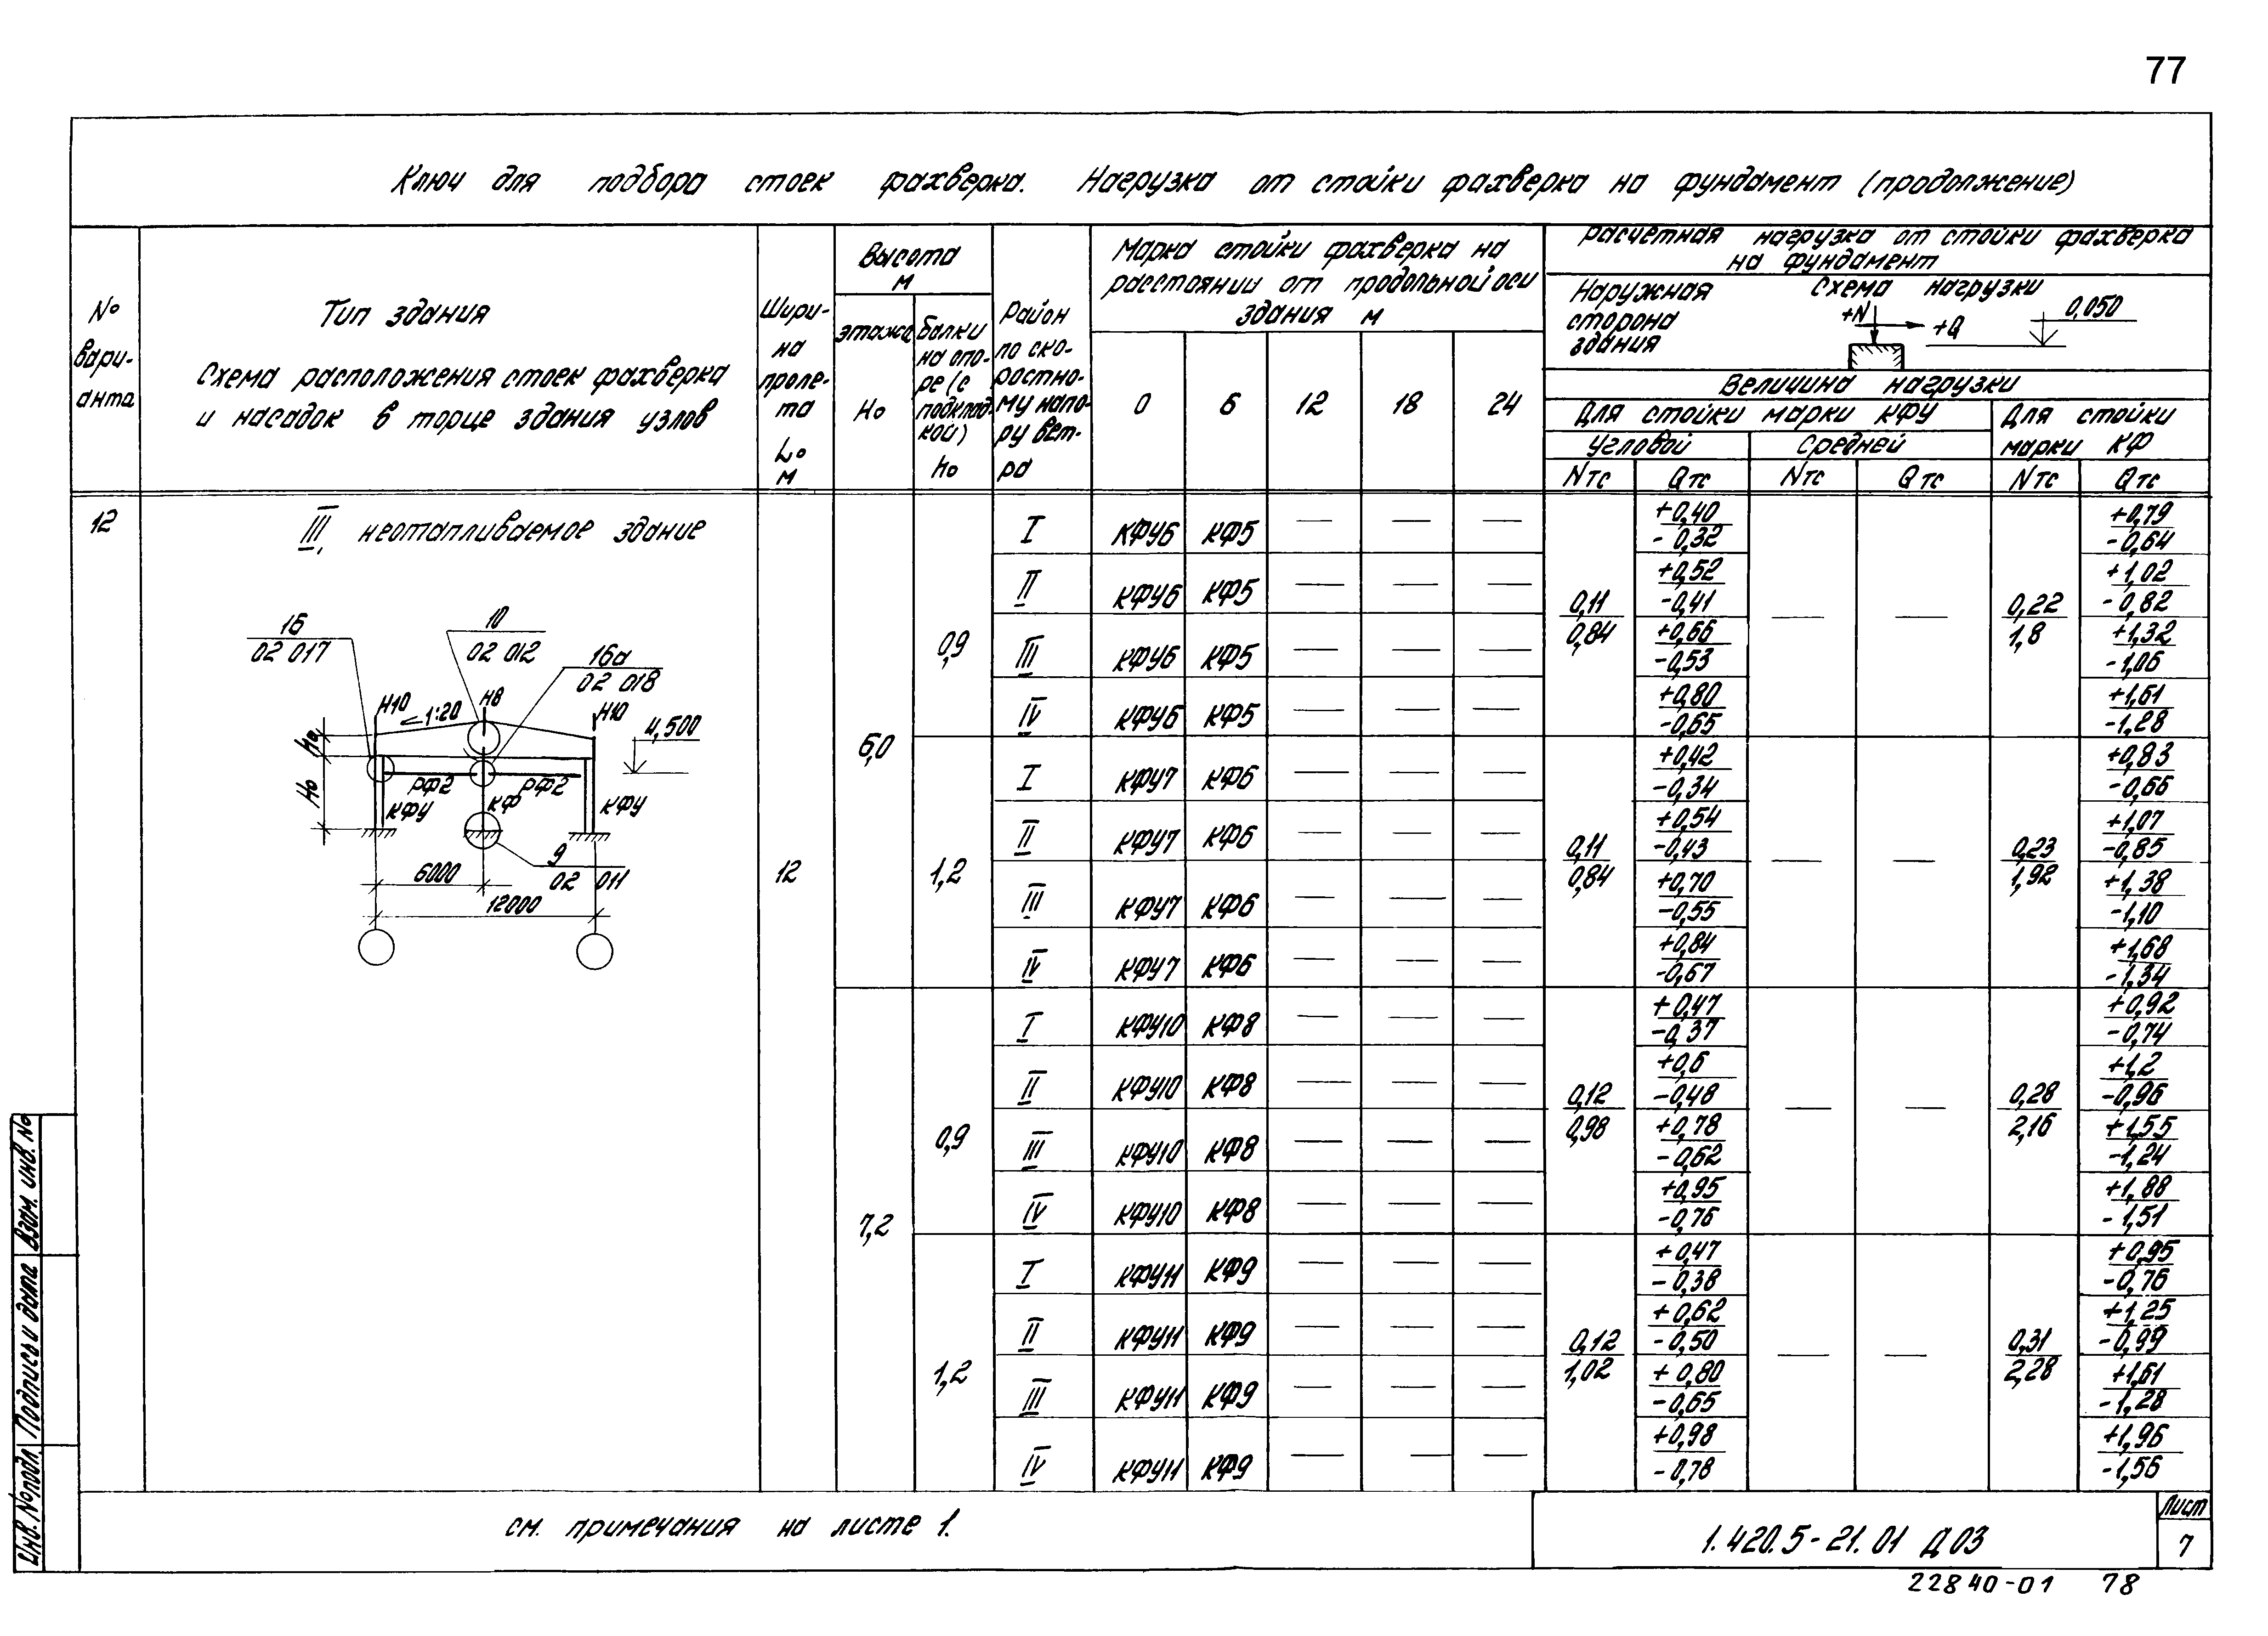 77
Ключ для подбора стоек фахверка. Нагрузка от стойки фахверка на фундамент (продолжение)
№ вари-анта
Тип здания
Схема расположения стоек фахверка
и насадок в торце здания узлов
Шири-на проле-та L₀ м
Высота м
этажа H₀
балки на опо-ре (с подклад-кой) h₀
Район по ско-ростно-му напо-ру вет-ра
Марка стойки фахверка на
расстоянии от продольной оси
здания м
0 6 12 18 24
Расчетная нагрузка от стойки фахверка
на фундамент
Наружная сторона здания
Схема нагрузки
+N +Q 0,050
Величина нагрузки
Для стойки марки КФУ
Для стойки марки КФ
Угловой Средней
N тс Q тс N тс Q тс N тс Q тс
12
III, неотапливаемое здание
16
02 017
10
02 012
16а
02 018
Н10 1:20 Н8 Н10
4,500
h₀
H₀
РФ2 РФ2
КФУ КФ КФУ
9
02 011
6000
12000
12
6,0
0,9
I КФУ6 КФ5 — — — +0,40 -0,32 +0,79 -0,64
II КФУ6 КФ5 — — — +0,52 -0,41 +1,02 -0,82
0,11 0,84 — — 0,22 1,8
III КФУ6 КФ5 — — — +0,66 -0,53 +1,32 -1,06
IV КФУ6 КФ5 — — — +0,80 -0,65 +1,61 -1,28
1,2
I КФУ7 КФ6 — — — +0,42 -0,34 +0,83 -0,66
II КФУ7 КФ6 — — — +0,54 -0,43 +1,07 -0,85
0,11 0,84 — — 0,23 1,92
III КФУ7 КФ6 — — — +0,70 -0,55 +1,38 -1,10
IV КФУ7 КФ6 — — — +0,84 -0,67 +1,68 -1,34
7,2
0,9
I КФУ10 КФ8 — — — +0,47 -0,37 +0,92 -0,74
II КФУ10 КФ8 — — — +0,6 -0,48 +1,2 -0,96
0,12 0,98 — — 0,28 2,16
III КФУ10 КФ8 — — — +0,78 -0,62 +1,55 -1,24
IV КФУ10 КФ8 — — — +0,95 -0,76 +1,88 -1,51
1,2
I КФУ11 КФ9 — — — +0,47 -0,38 +0,95 -0,76
II КФУ11 КФ9 — — — +0,62 -0,50 +1,25 -0,99
0,12 1,02 — — 0,31 2,28
III КФУ11 КФ9 — — — +0,80 -0,65 +1,61 -1,28
IV КФУ11 КФ9 — — — +0,98 -0,78 +1,96 -1,56
см. примечания на листе 1.
1.420.5-21.01 Д03
Лист
7
22840-01 78
Инв. № подл. Подпись и дата Взам. инв. №